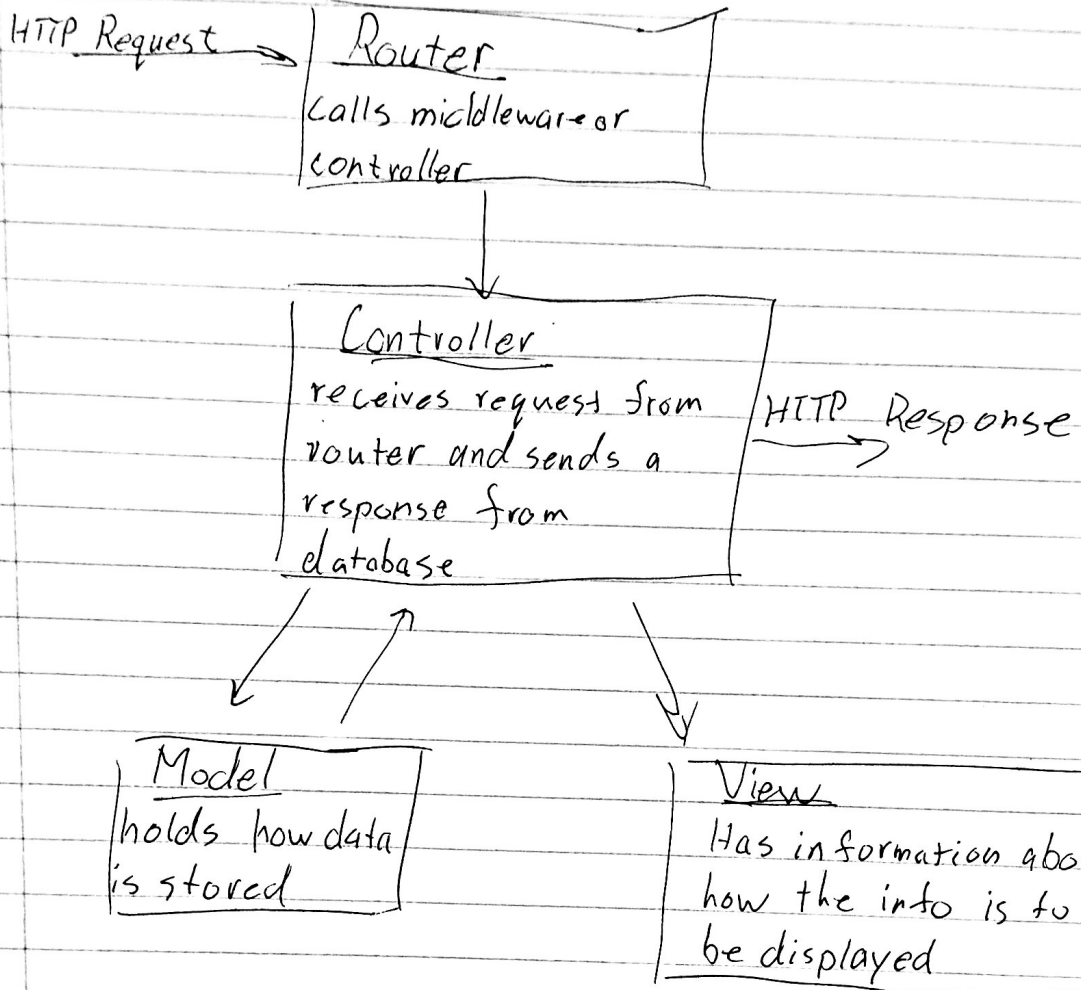 HTTP Request
Router
Calls middleware or
controller
Controller
receives request from
router and sends a
response from
database
HTTP Response
Model
holds how data
is stored
View
Has information abo
how the info is to
be displayed